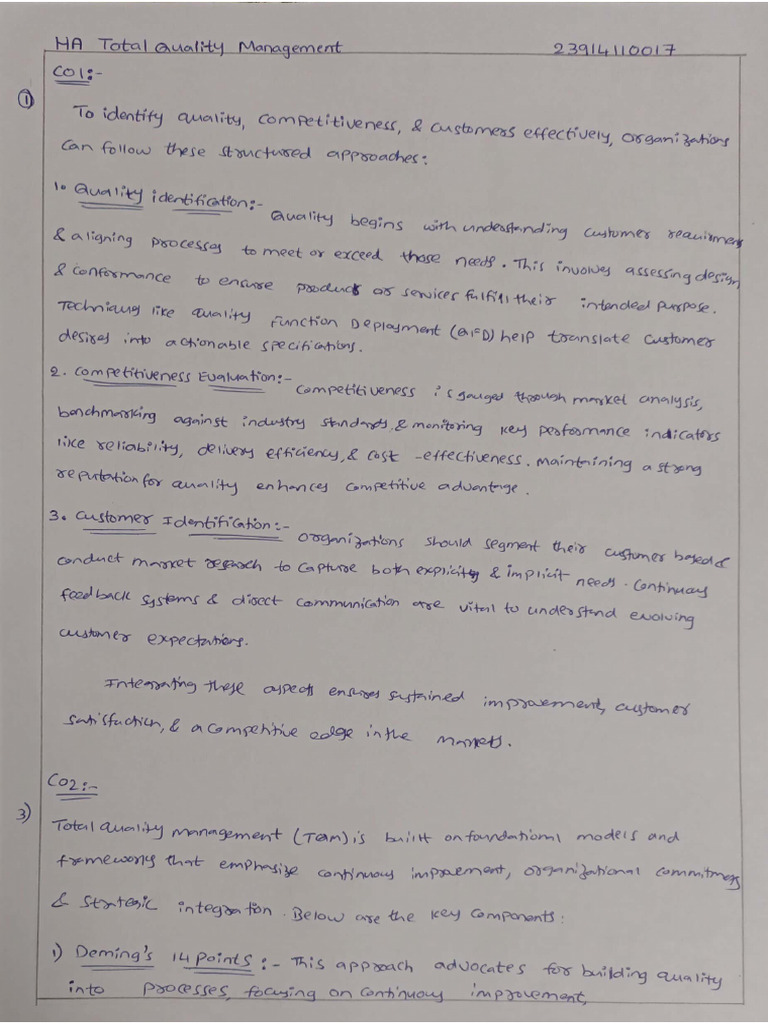 HA Total Quality Management 23914110017
CO1:-
①
To identify quality, competitiveness, & customers effectively, organizations
can follow these structured approaches:
1. Quality identification:-
Quality begins with understanding customer requirments
& aligning processes to meet or exceed those needs. This involves assessing design
& conformance to ensure products or services fulfill their intended purpose.
Techniques like Quality Function Deployment (QFD) help translate customer
desires into actionable specifications.
2. Competitiveness Evaluation:-
Competitiveness is gauged through market analysis,
benchmarking against industry standards, & monitoring key performance indicators
like reliability, delivery efficiency, & cost -effectiveness. Maintaining a strong
reputation for quality enhances competitive advantage.
3. Customer Identification:-
Organizations should segment their customer based &
conduct market research to capture both explicity & implicit needs. Continuous
feedback systems & direct communication are vital to understand evolving
customer expectations.
Integrating these aspects ensures sustained improvement, customer
satisfaction, & a competitive edge in the markets.
CO2:-
3)
Total Quality management (TQM) is built on foundational models and
frameworks that emphasize continuous improvement, organizational commitmess
& strategic integration. Below are the key components:
1) Deming's 14 points:- This approach advocates for building quality
into processes, focusing on continuous improvement,